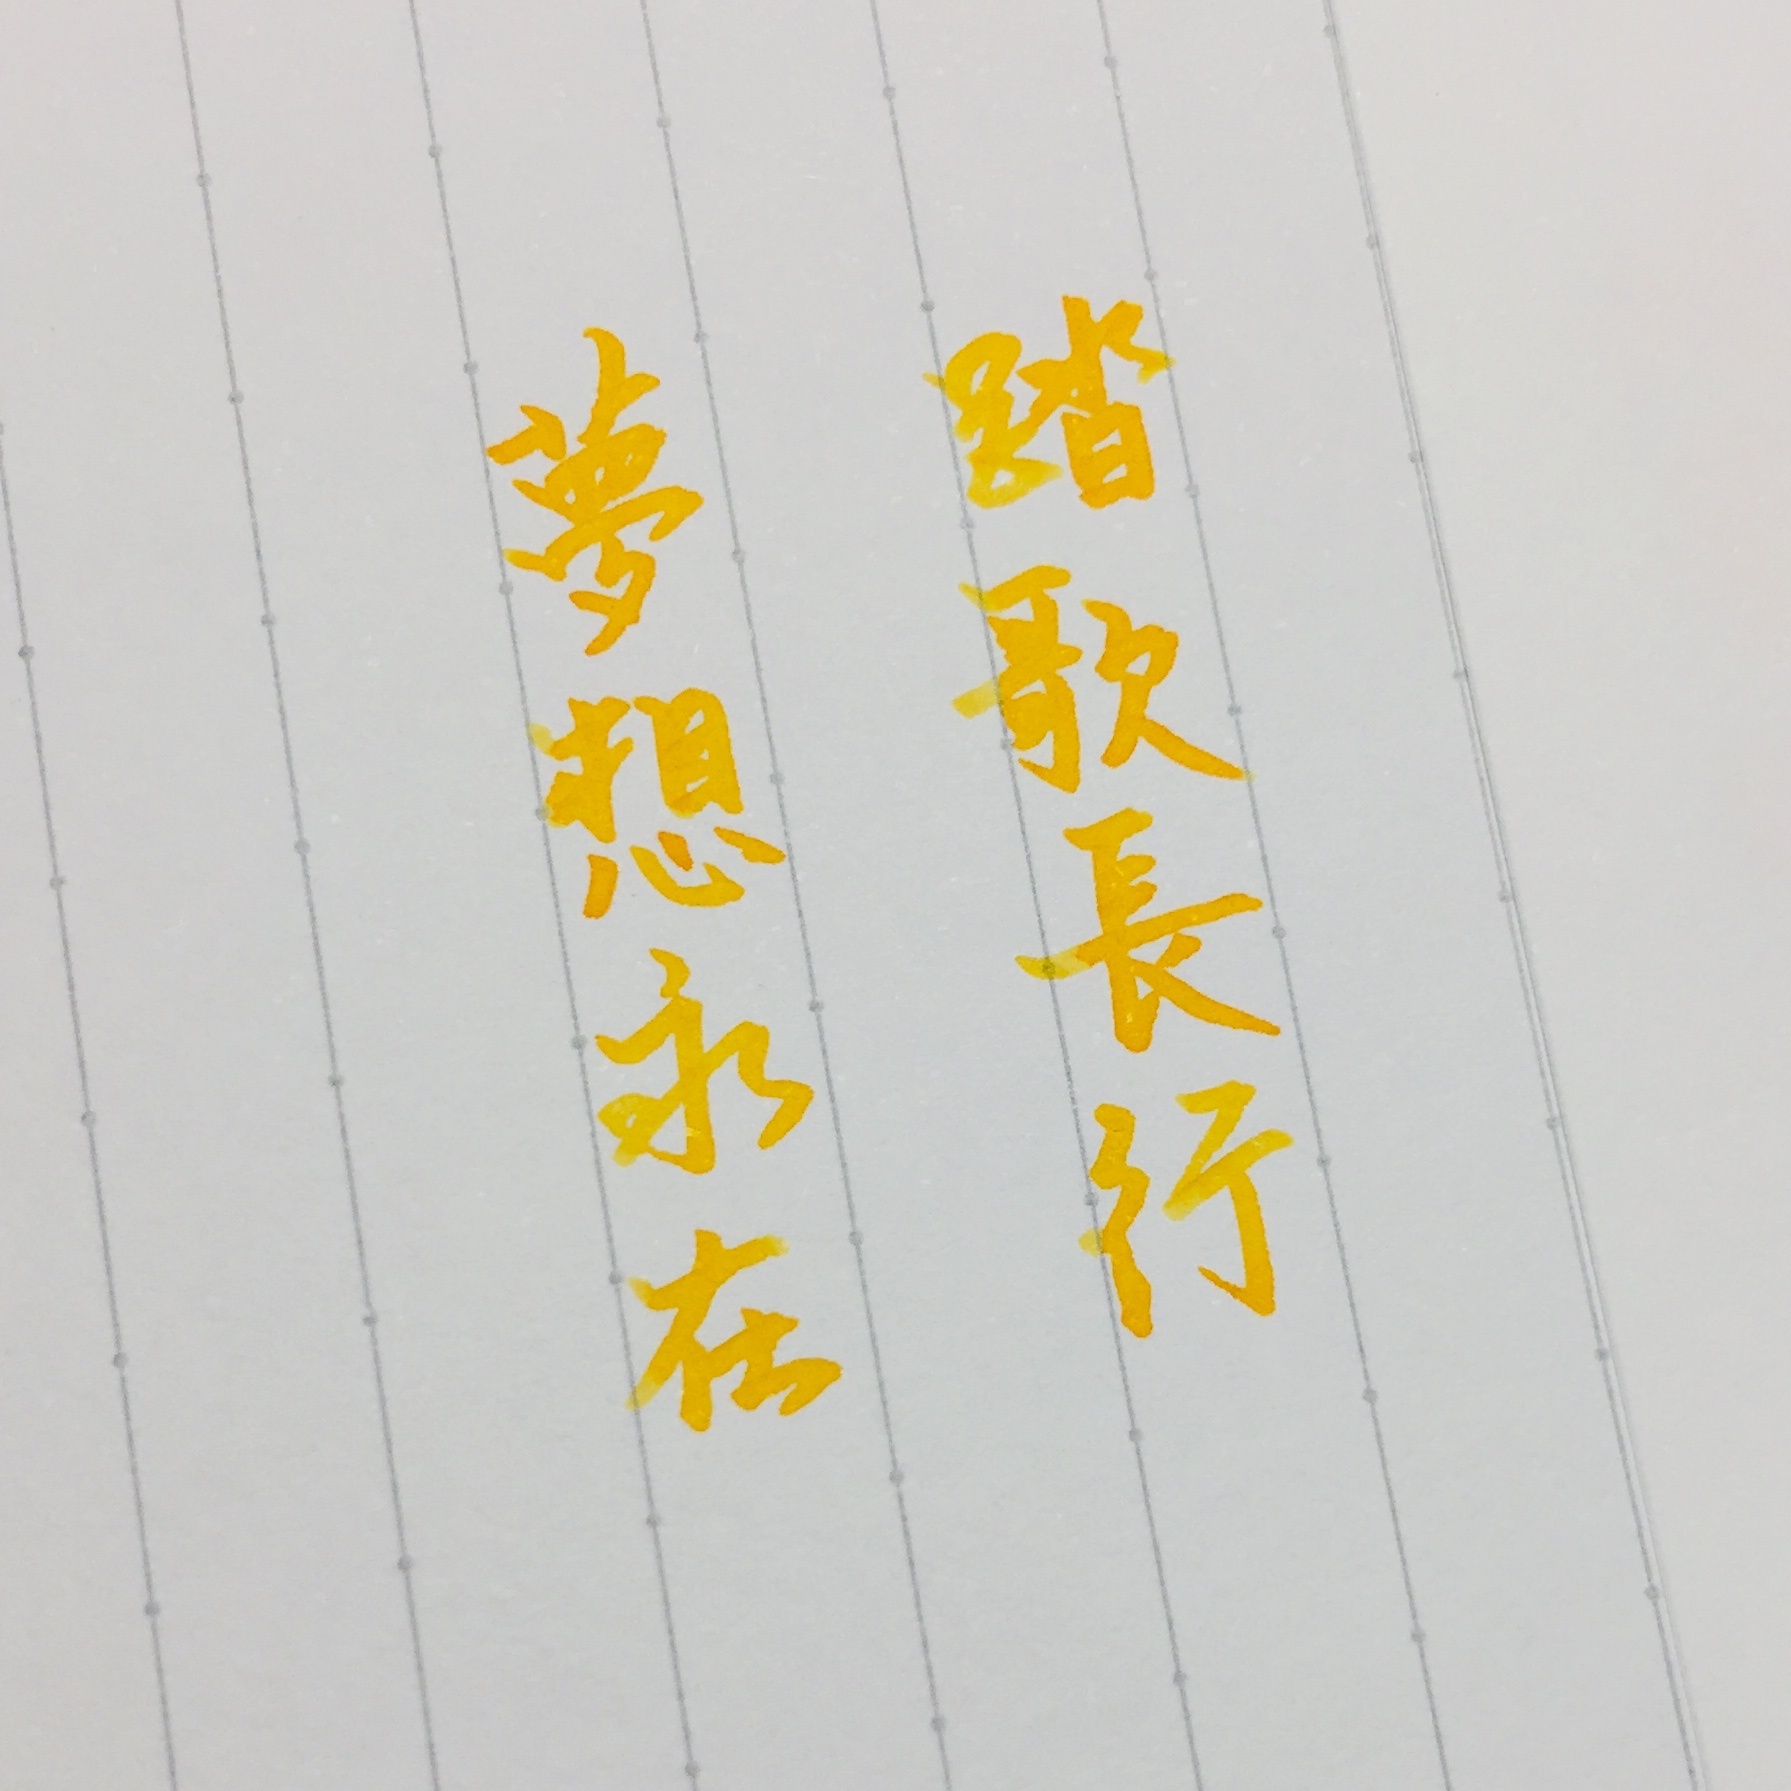 踏歌長行
夢想永在